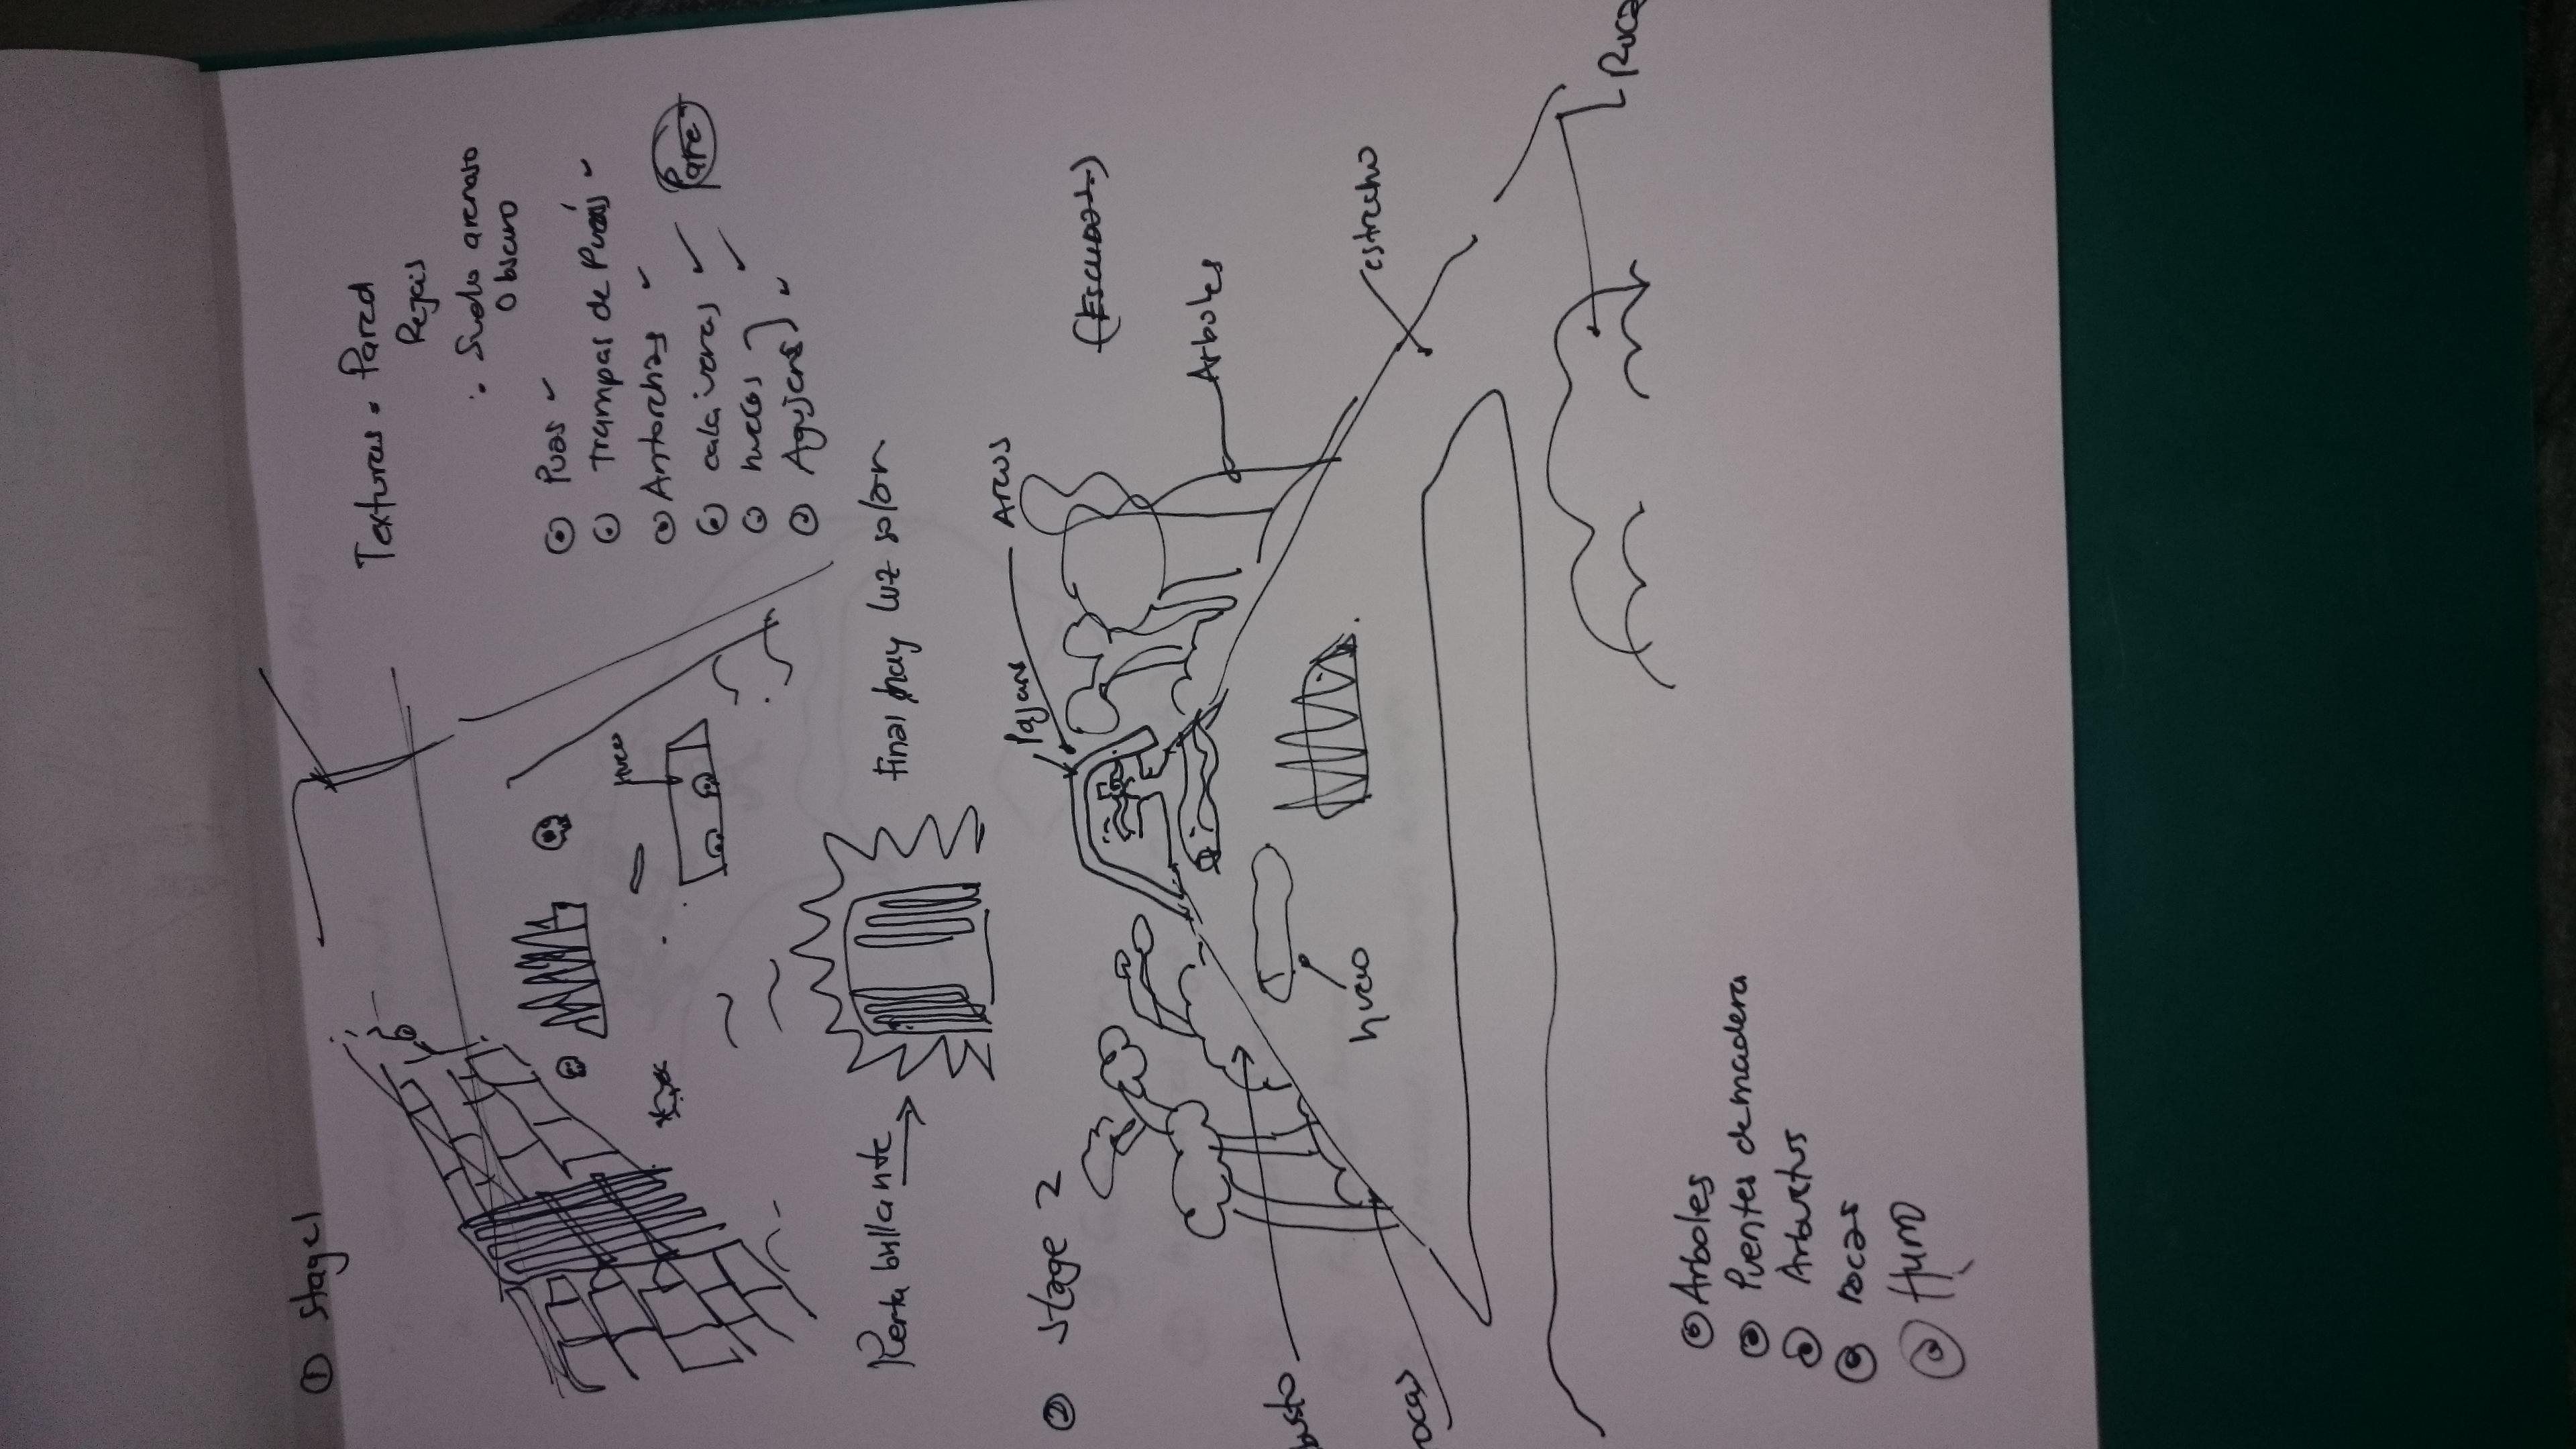 ① Stage 1
Texturas • Pared
Rejas
• Suelo arenoso
Obscuro
Puas ✓
Trampas de Puas ✓
Antorchas ✓
calaveras ✓
huecos ✓
Agujeros ✓
Hueco
Puerta brillante
Final hay luz solar
② Stage 2
Arcos
Arboles
busto
hueco
estrecho
ocas
Roca
Arboles
Puentes de madera
Arbustos
Rocas
Humo